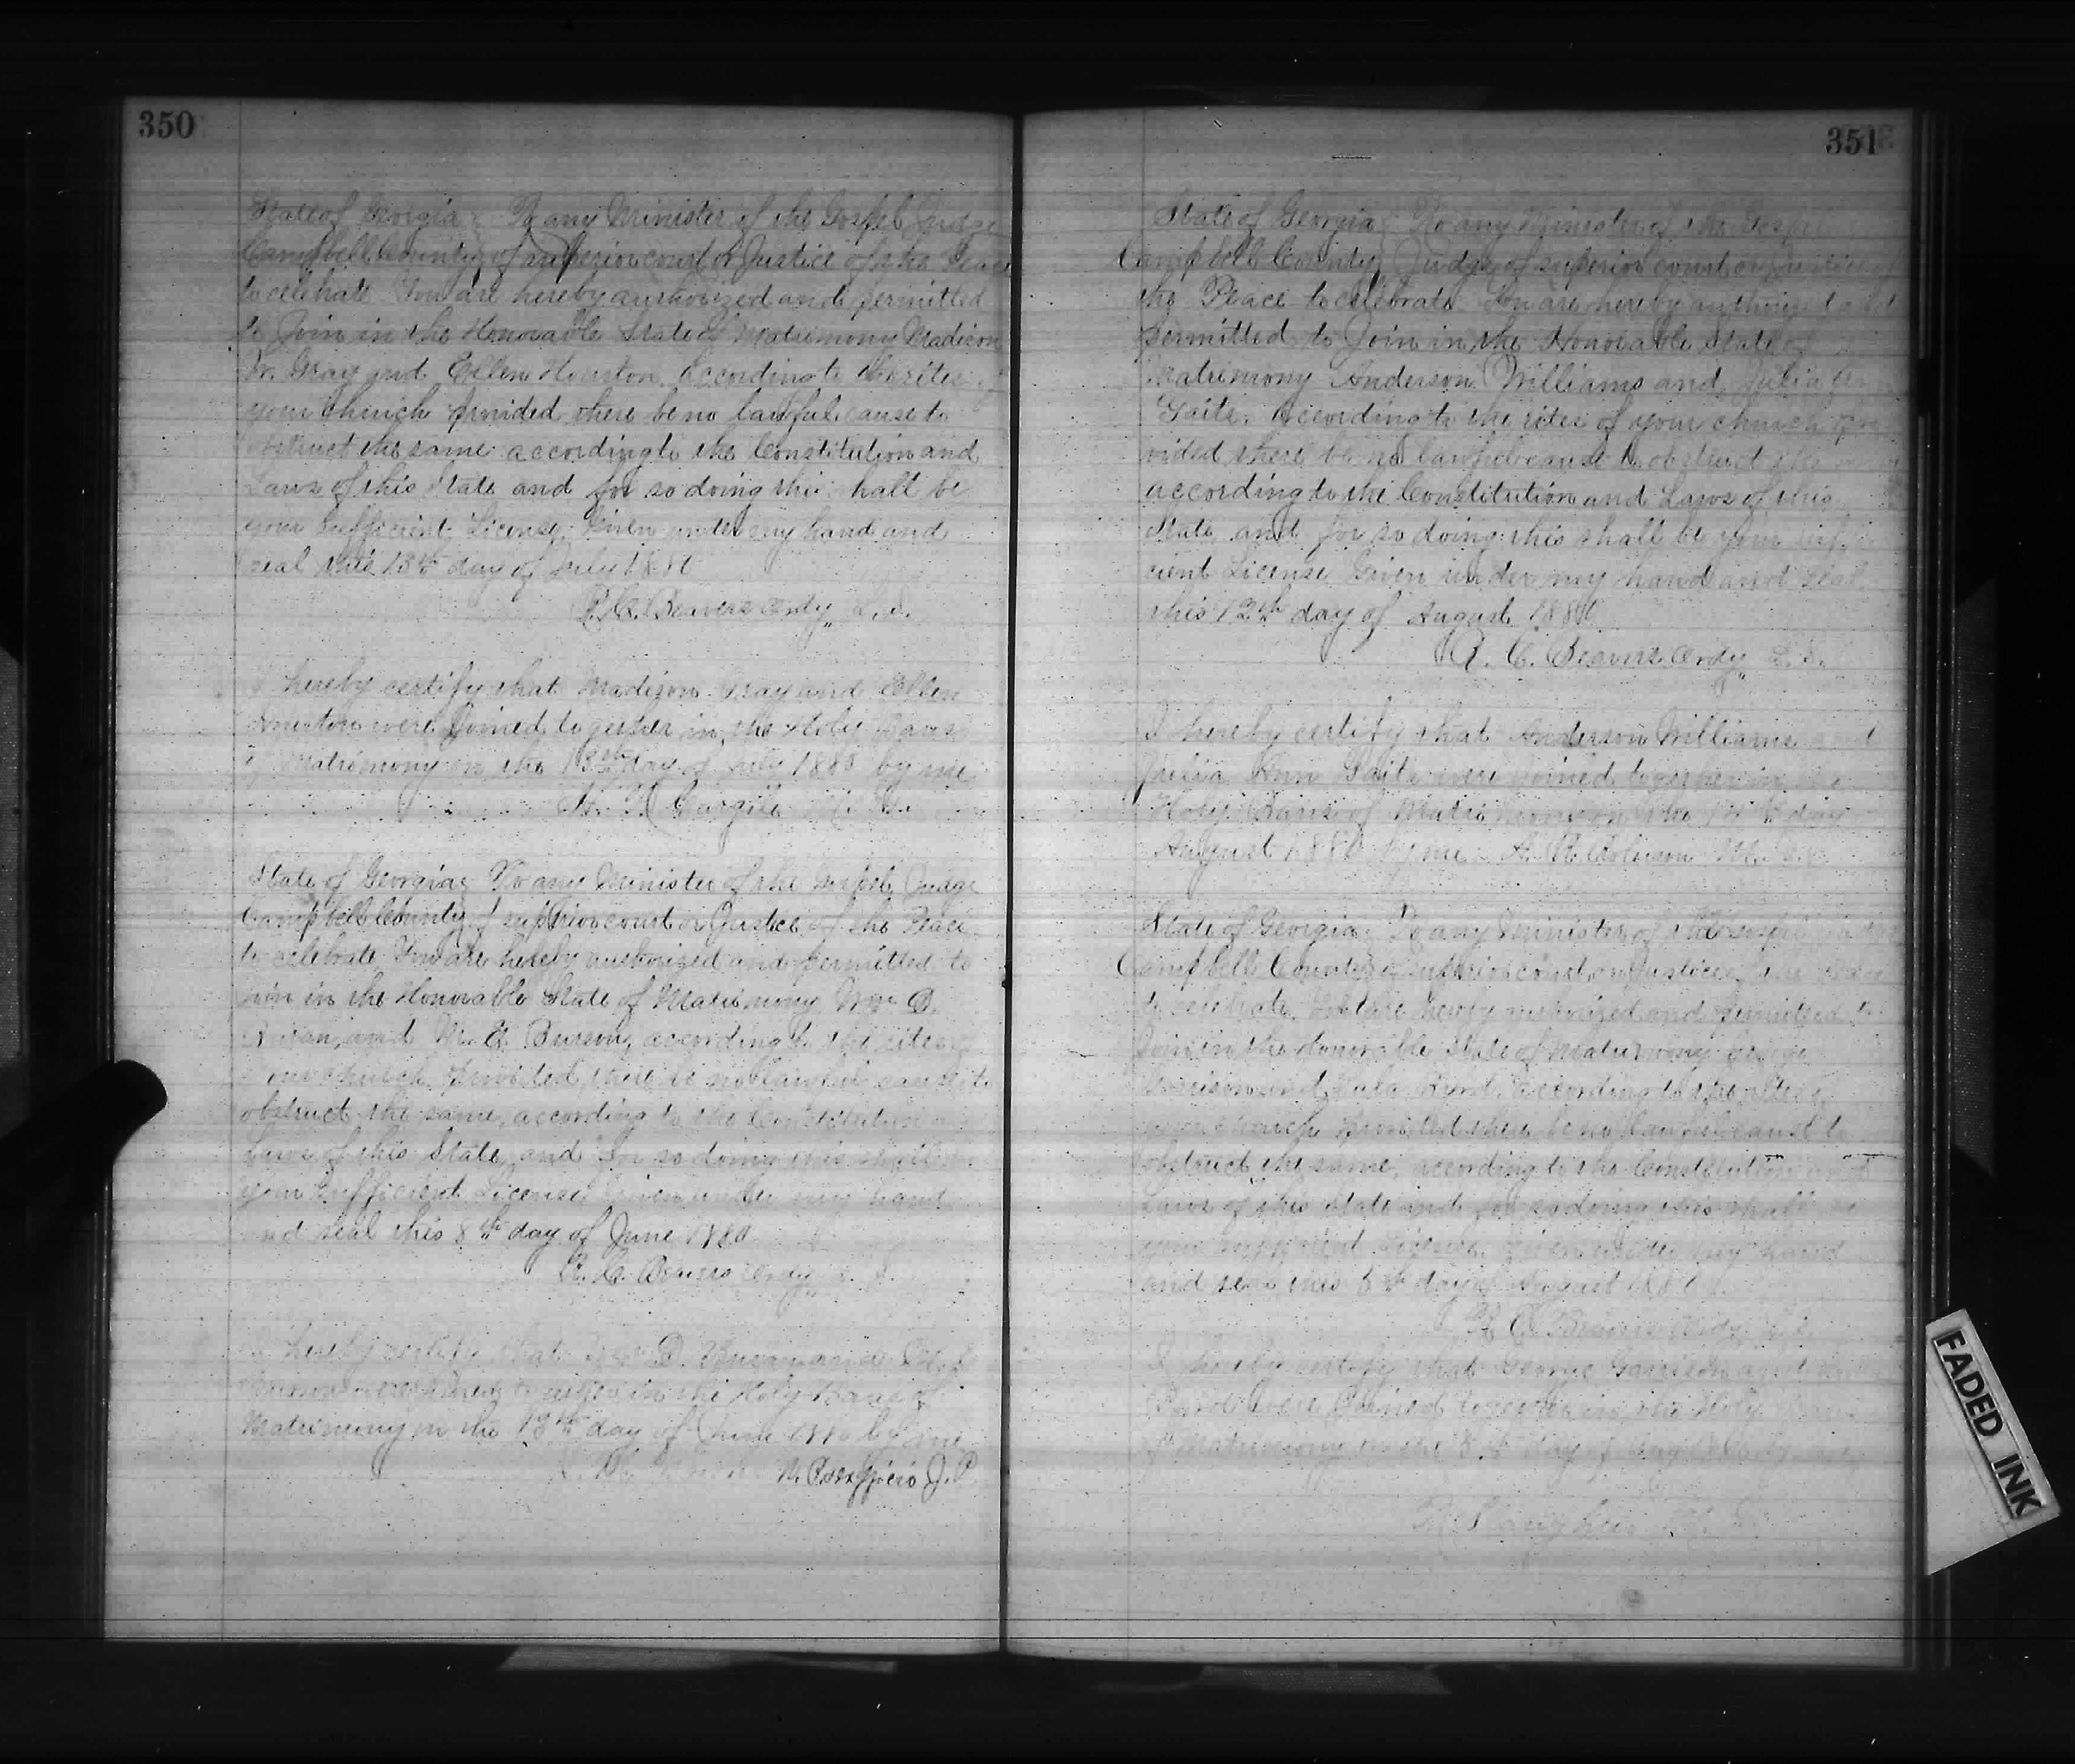 350
State of Georgia To any Minister of the Gospel Judge
Campbell County of superior court or Justice of the Peace
to celebrate You are hereby authorized and permitted
to Join in the Honorable State of Matrimony Madison
W. Gray and Ellen Houston according to the rites of
your church provided there be no lawful cause to
obstruct the same according to the Constitution and
Laws of this State and for so doing this shall be
your sufficient License Given under my hand and
seal this 13th day of July 1880
R. C. Beavers Ordy L. S.
I hereby certify that Madison Gray and Ellen
Houston were Joined together in the Holy Bans
of Matrimony on the 13th day of July 1880 by me
State of Georgia To any Minister of the Gospel Judge
Campbell County of superior court or Justice of the Peace
to celebrate You are hereby authorized and permitted to
join in the Honorable State of Matrimony Wm D.
and M. E. Burson, according to the rites
your church provided there be no lawful cause to
obstruct the same, according to the Constitution
Laws of this State, and for so doing this shall
your sufficient License Given under my hand
and seal this 8th day of June 1880
R. C. Beavers Ordy L. S.
I hereby certify that Wm D.
were Joined together in the Holy Bans of
Matrimony on the 13th day of June 1880 by me
N. P. & Ex officio J. P
351
State of Georgia To any Minister of the Gospel
Campbell County Judge of superior court or Justice of
the Peace to celebrate. You are hereby authorized and
permitted to Join in the Honorable State of
Matrimony Anderson Williams and Julia Ann
Gaits. According to the rites of your church pro
vided there be no lawful cause to obstruct the same
according to the Constitution and Laws of this
State and for so doing this shall be your suffi
cient License Given under my hand and seal
this 12th day of August 1880
R. C. Beavers Ordy L. S.
I hereby certify that Anderson Williams and
Julia Ann Gaits were joined together in the
Holy Bans of Matrimony on the day
August 1880 by me A. R. M. G.
State of Georgia To any Minister of the Gospel
Campbell County of superior court or Justice of the Peace
to celebrate. You are hereby authorized and permitted to
Join in the Honorable State of Matrimony George
Garrison and Byrd. According to the rites of
your church provided there be no lawful cause to
obstruct the same, according to the Constitution and
Laws of this State and for so doing this shall be
your sufficient License. Given under my hand
and seal this day of August 1880
R. C. Beavers Ordy L. S.
I hereby certify that George Garrison and
were Joined together in the Holy
of Matrimony on the day of Aug 1880 by me
FADED INK